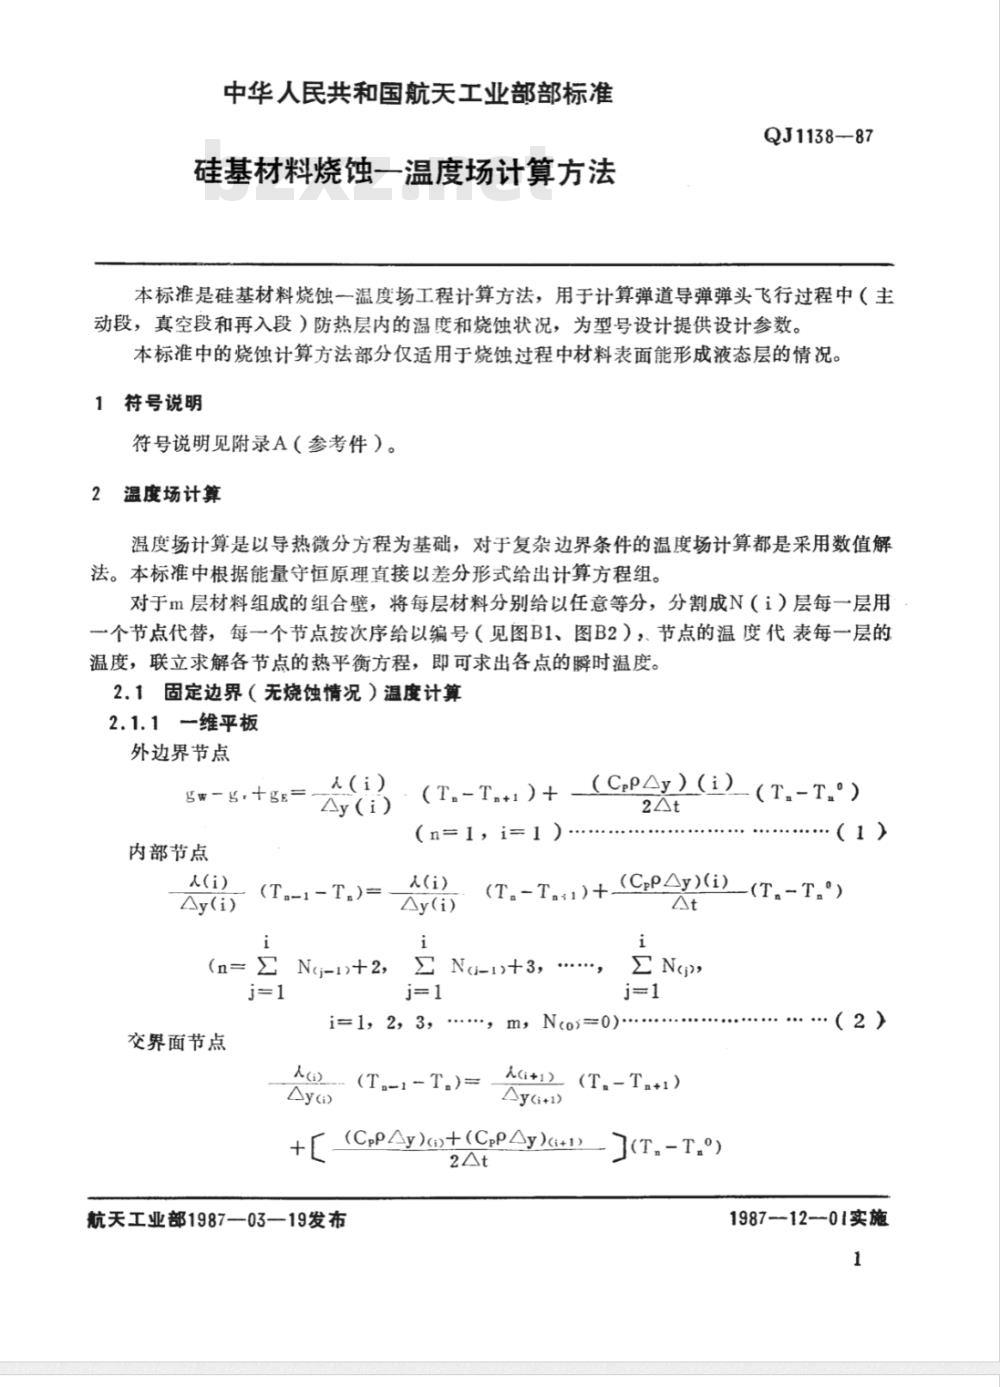 中华人民共和国航天工业部部标准
QJ1138—87
bzxz.net
硅基材料烧蚀—温度场计算方法
本标准是硅基材料烧蚀—温度场工程计算方法，用于计算弹道导弹弹头飞行过程中（主
动段，真空段和再入段）防热层内的温度和烧蚀状况，为型号设计提供设计参数。
本标准中的烧蚀计算方法部分仅适用于烧蚀过程中材料表面能形成液态层的情况。
1 符号说明
符号说明见附录A（参考件）。
2 温度场计算
温度场计算是以导热微分方程为基础，对于复杂边界条件的温度场计算都是采用数值解
法。本标准中根据能量守恒原理直接以差分形式给出计算方程组。
对于m 层材料组成的组合壁，将每层材料分别给以任意等分，分割成N（i）层每一层用
一个节点代替，每一个节点按次序给以编号（见图B1、图B2），节点的温 度 代 表每一层的
温度，联立求解各节点的热平衡方程，即可求出各点的瞬时温度。
2.1 固定边界（无烧蚀情况）温度计算
2.1.1 一维平板
外边界节点
g_w－g_r＋g_E＝ λ(i)/△y(i) (T_n－T_{n+1})＋ (C_Pρ△y)(i)/2△t (T_n－T_n⁰)
(n＝1，i＝1)………………………………(1)
内部节点
λ(i)/△y(i) (T_{n-1}－T_n)＝ λ(i)/△y(i) (T_n－T_{n+1})＋ (C_Pρ△y)(i)/△t (T_n－T_n⁰)
(n＝ ∑_{j=1}^{i} N_(j-1)＋2， ∑_{j=1}^{i} N_(j-1)＋3，……， ∑_{j=1}^{i} N_(j)，
i＝1，2，3，……，m，N_(0)＝0)………………………………(2)
交界面节点
λ_(i)/△y_(i) (T_{n-1}－T_n)＝ λ_(i+1)/△y_(i+1) (T_n－T_{n+1})
＋[ (C_Pρ△y)_(i)＋(C_Pρ△y)_(i+1)/2△t ](T_n－T_n⁰)
航天工业部1987—03—19发布
1987—12—01实施
1